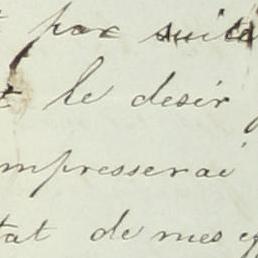 par suite
le desir
mpresserai
tat de mes ef